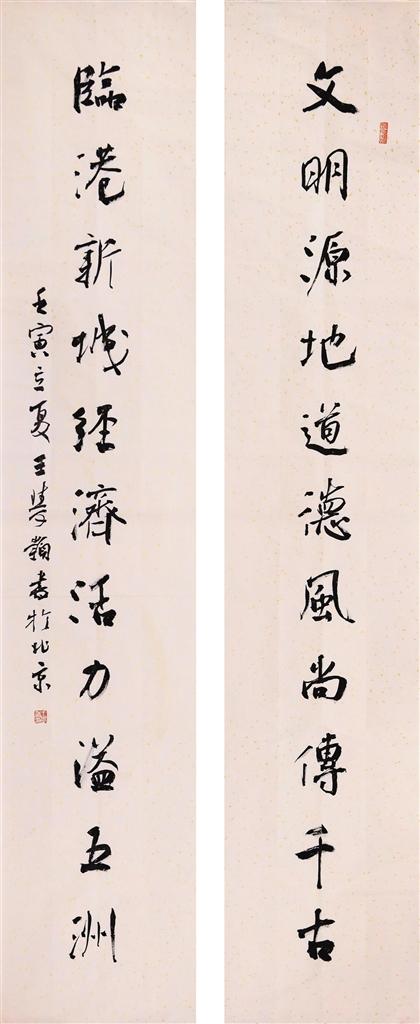 文明源地道德風尚傳千古
臨港新城經濟活力溢五洲
壬寅立夏王夢穎書於北京